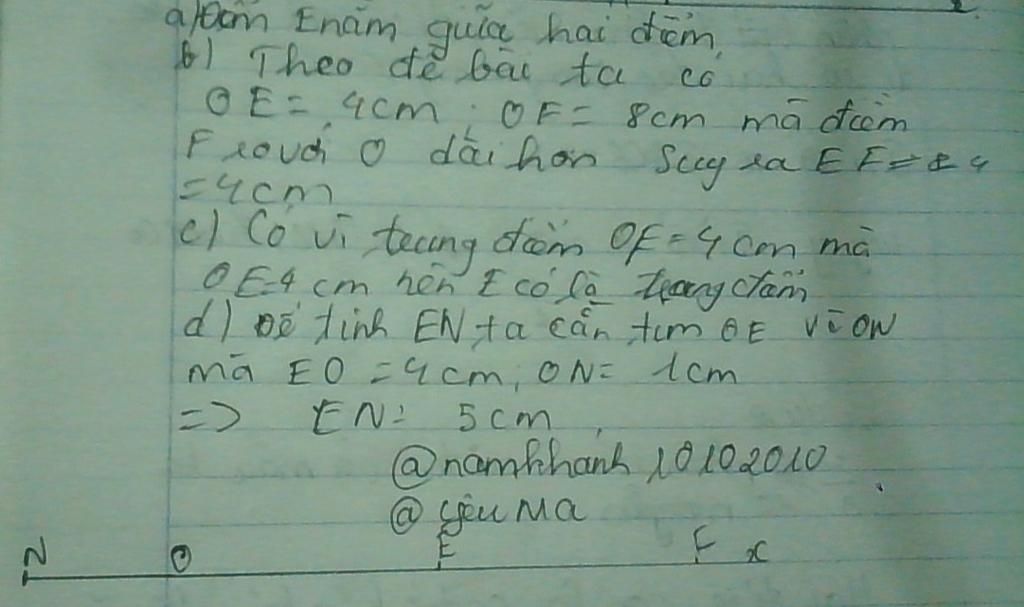 a) Điểm E nằm giữa hai điểm.
b) Theo đề bài ta có
OE = 4cm; OF = 8cm mà điểm
F so với O dài hơn Suy ra EF = 8-4
= 4cm
c) Có vì trung điểm OF = 4 cm mà
OE=4 cm nên E có là trung điểm
d) Để tính EN, ta cần tìm OE vì ON
mà EO = 4cm, ON = 1cm
=> EN = 5cm
@namkhanh10102010
@yêuMa
N O E F x